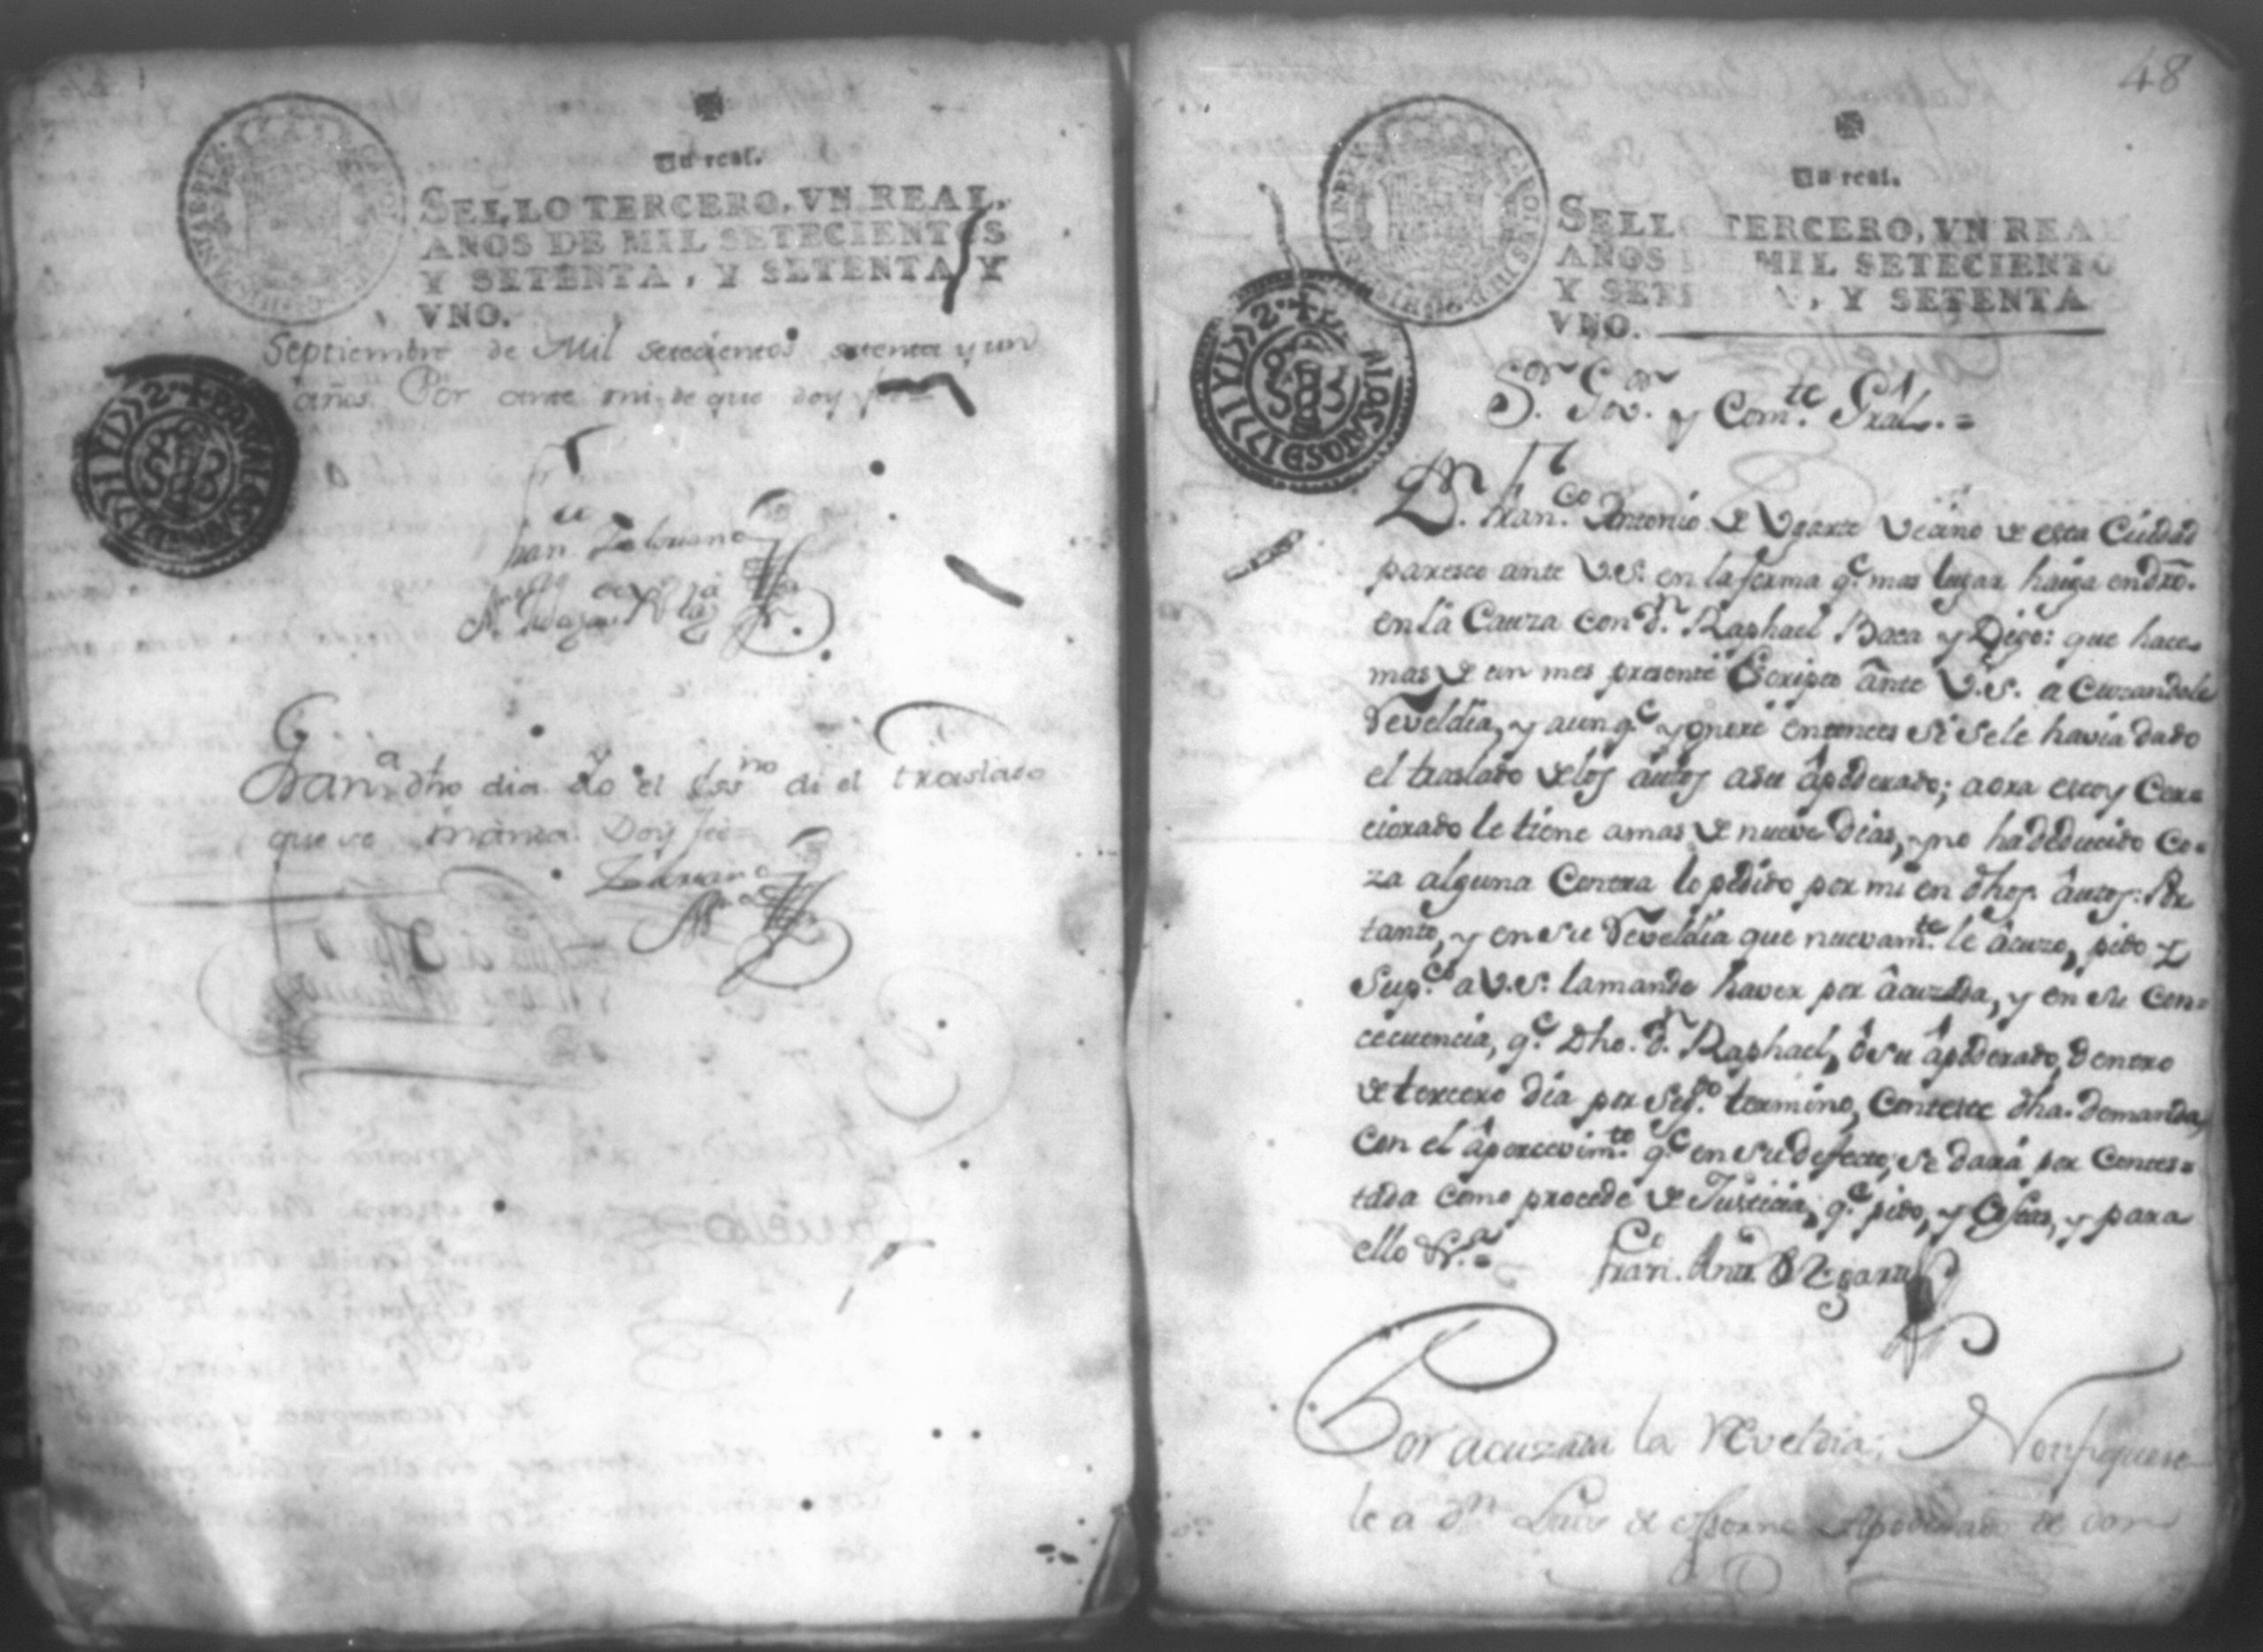 Un real.
SELLO TERCERO, VN REAL,
AÑOS DE MIL SETECIENTOS
Y SETENTA, Y SETENTA Y
VNO.
Septiembre de Mil setecientos setenta y un
años. Por ante mi de que doy fee=
En dho dia Yo el Essno di el traslado
que se manda. Doy fee=
48
Un real.
SELLO TERCERO, VN REAL
AÑOS DE MIL SETECIENTO
Y SETENTA, Y SETENTA
VNO.
Sor. Gov.or y Com.te Gral.=
Dn. Fran.co Antonio de Vgarte Vecino de esta Ciudad
paresco ante V.S. en la forma q.e mas lugar haiga en dro.
en la Cauza con dn. Raphael Baca y Digo: que hace
mas de un mes presenté Escripto ante V.S. acuzandole
Reveldia, y aunq.e ygnoré entonces si se le havia dado
el traslado de los autos a su apoderado; aora estoy Cer=
ciorado le tiene a mas de nueve dias, y no ha deducido co=
za alguna Contra lo pedido por mi en dhos. autos: Por
tanto, y en su Reveldia que nuevam.te le acuzo, pido y
Sup.co a V.S. la mande haver por acuzada, y en su Con=
cecuencia, q.e Dho. dn. Raphael, ó su apoderado, dentro
de tercero dia por seg.do termino, Conteste dha. demanda,
con el apercevim.to q.e en su defecto, se dará por Contes=
tada como procede de Justicia, q.e pido, y Costas, y para
ello &.a=
Fran.co Ant.o de Vgarte
Por acuzada la reveldia; Notifiquese
le a dn Luis de Apoderado de don